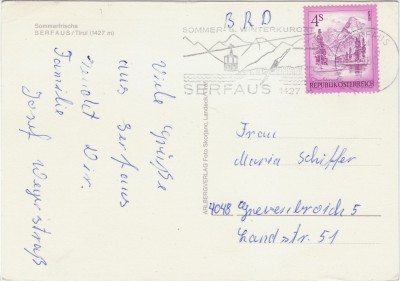 Sommerfrische
SERFAUS / Tirol (1427 m)
BRD
SOMMER- u. WINTERKURORT
SERFAUS 1427
4S
REPUBLIK ÖSTERREICH
Viele Grüße
aus Serfaus
sendet Dir
Familie
Josef
ALPBERGVERLAG Foto
Landeck
Frau
Maria Schiffer
4048 Grevenbroich 5
Landstr. 51